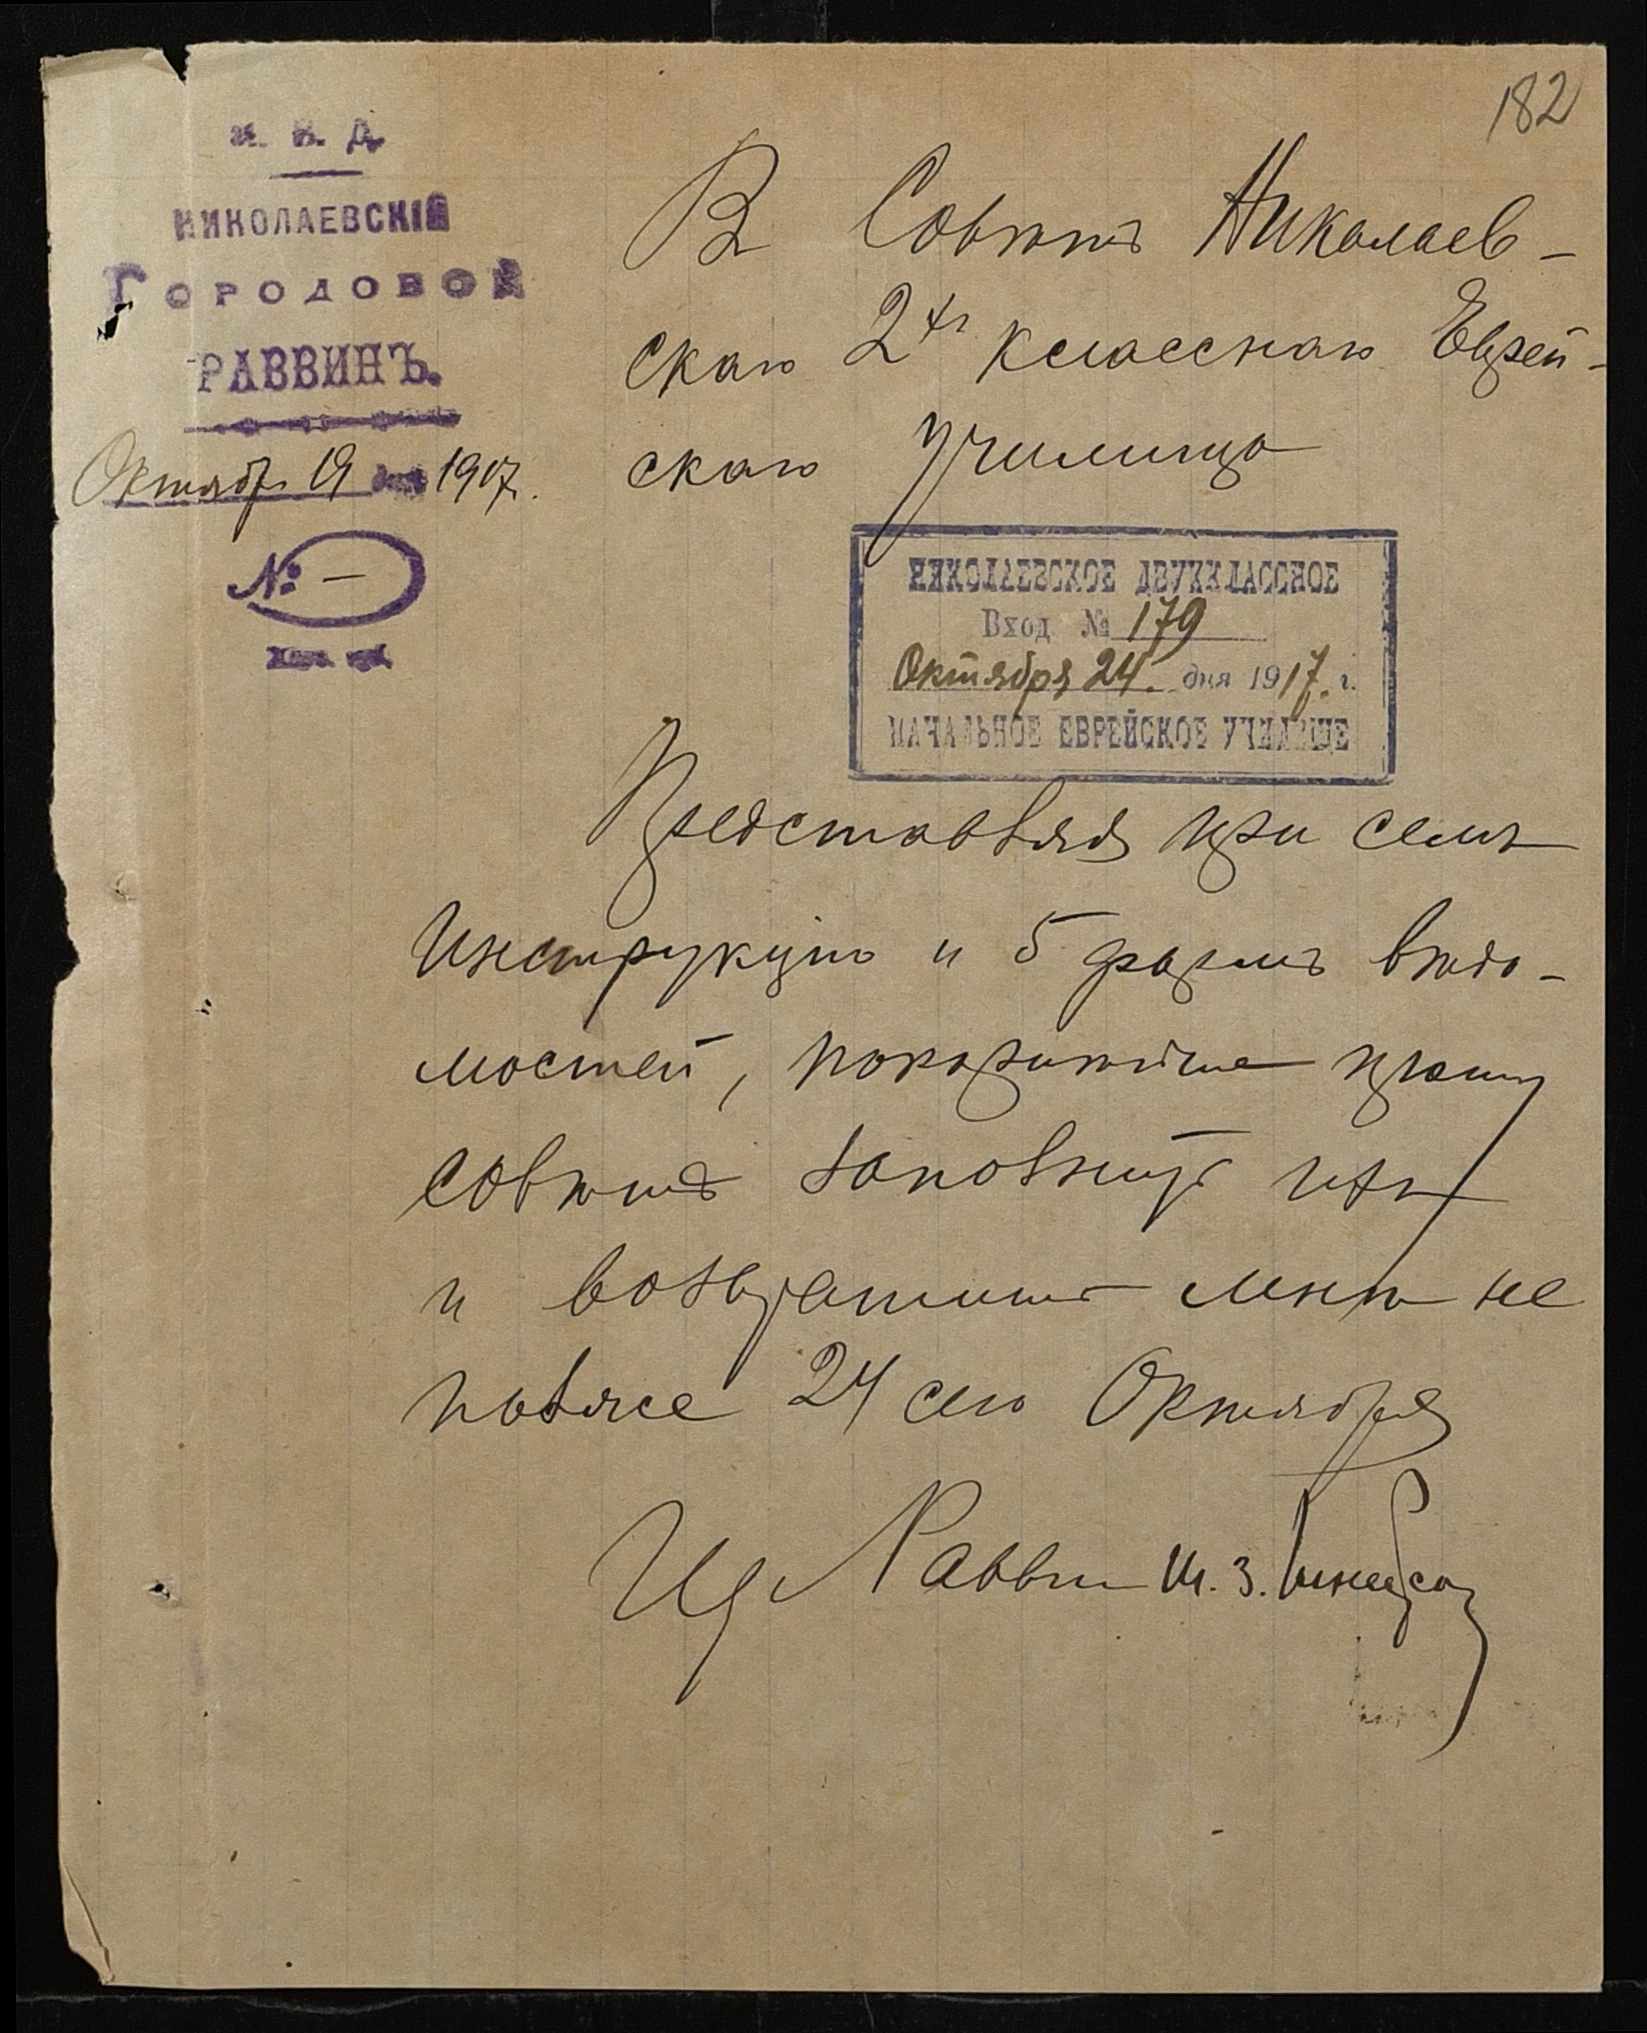 182
М. В. Д.
НИКОЛАЕВСКІЙ
ГОРОДОВОЙ
РАВВИНЪ.
Октября 19 дня 1917.
№ —
В Совѣтъ Николаев-
скаго 2хъ класснаго Еврей-
скаго училища
НИКОЛАЕВСКОЕ ДВУХКЛАССНОЕ
Вход № 179
Октября 24. дня 1917. г.
НАЧАЛЬНОЕ ЕВРЕЙСКОЕ УЧИЛИЩЕ
Представляя при семъ
Инструкцію и 5 формъ вѣдо-
мостей, покорнѣйше прошу
совѣтъ заполнить ихъ
и возвратить мнѣ не
позже 24 сего Октября
Раввин Ш. З.